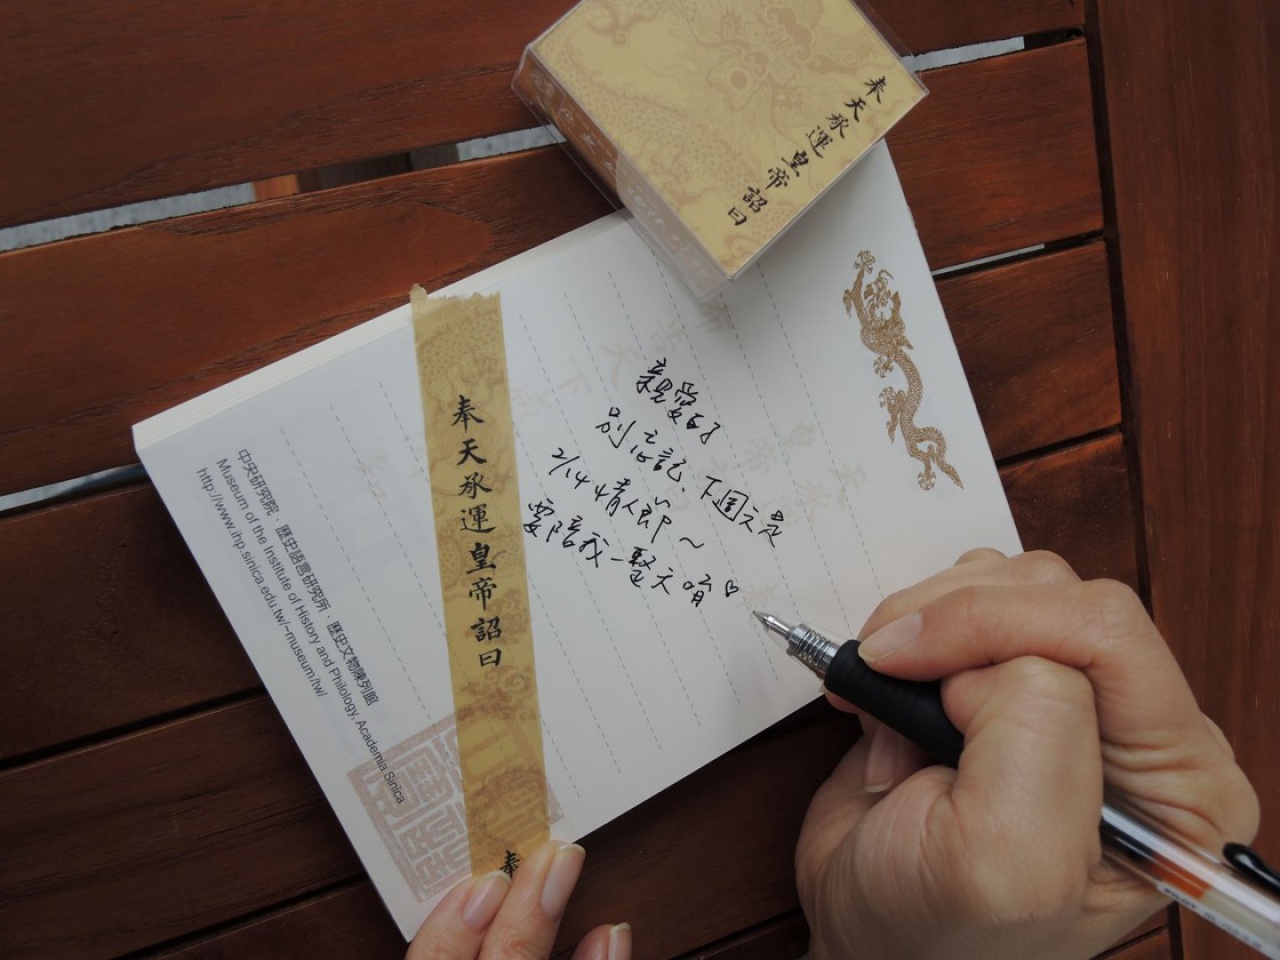 奉天承運
皇帝詔曰
親愛的
別忘記,下週六是
2/14 情人節~
要陪我一整天唷♡
奉天承運皇帝詔曰
奉
中央研究院‧歷史語言研究所‧歷史文物陳列館
Museum of the Institute of History and Philology, Academia Sinica
http://www.ihp.sinica.edu.tw/~museum/tw/
PILOT